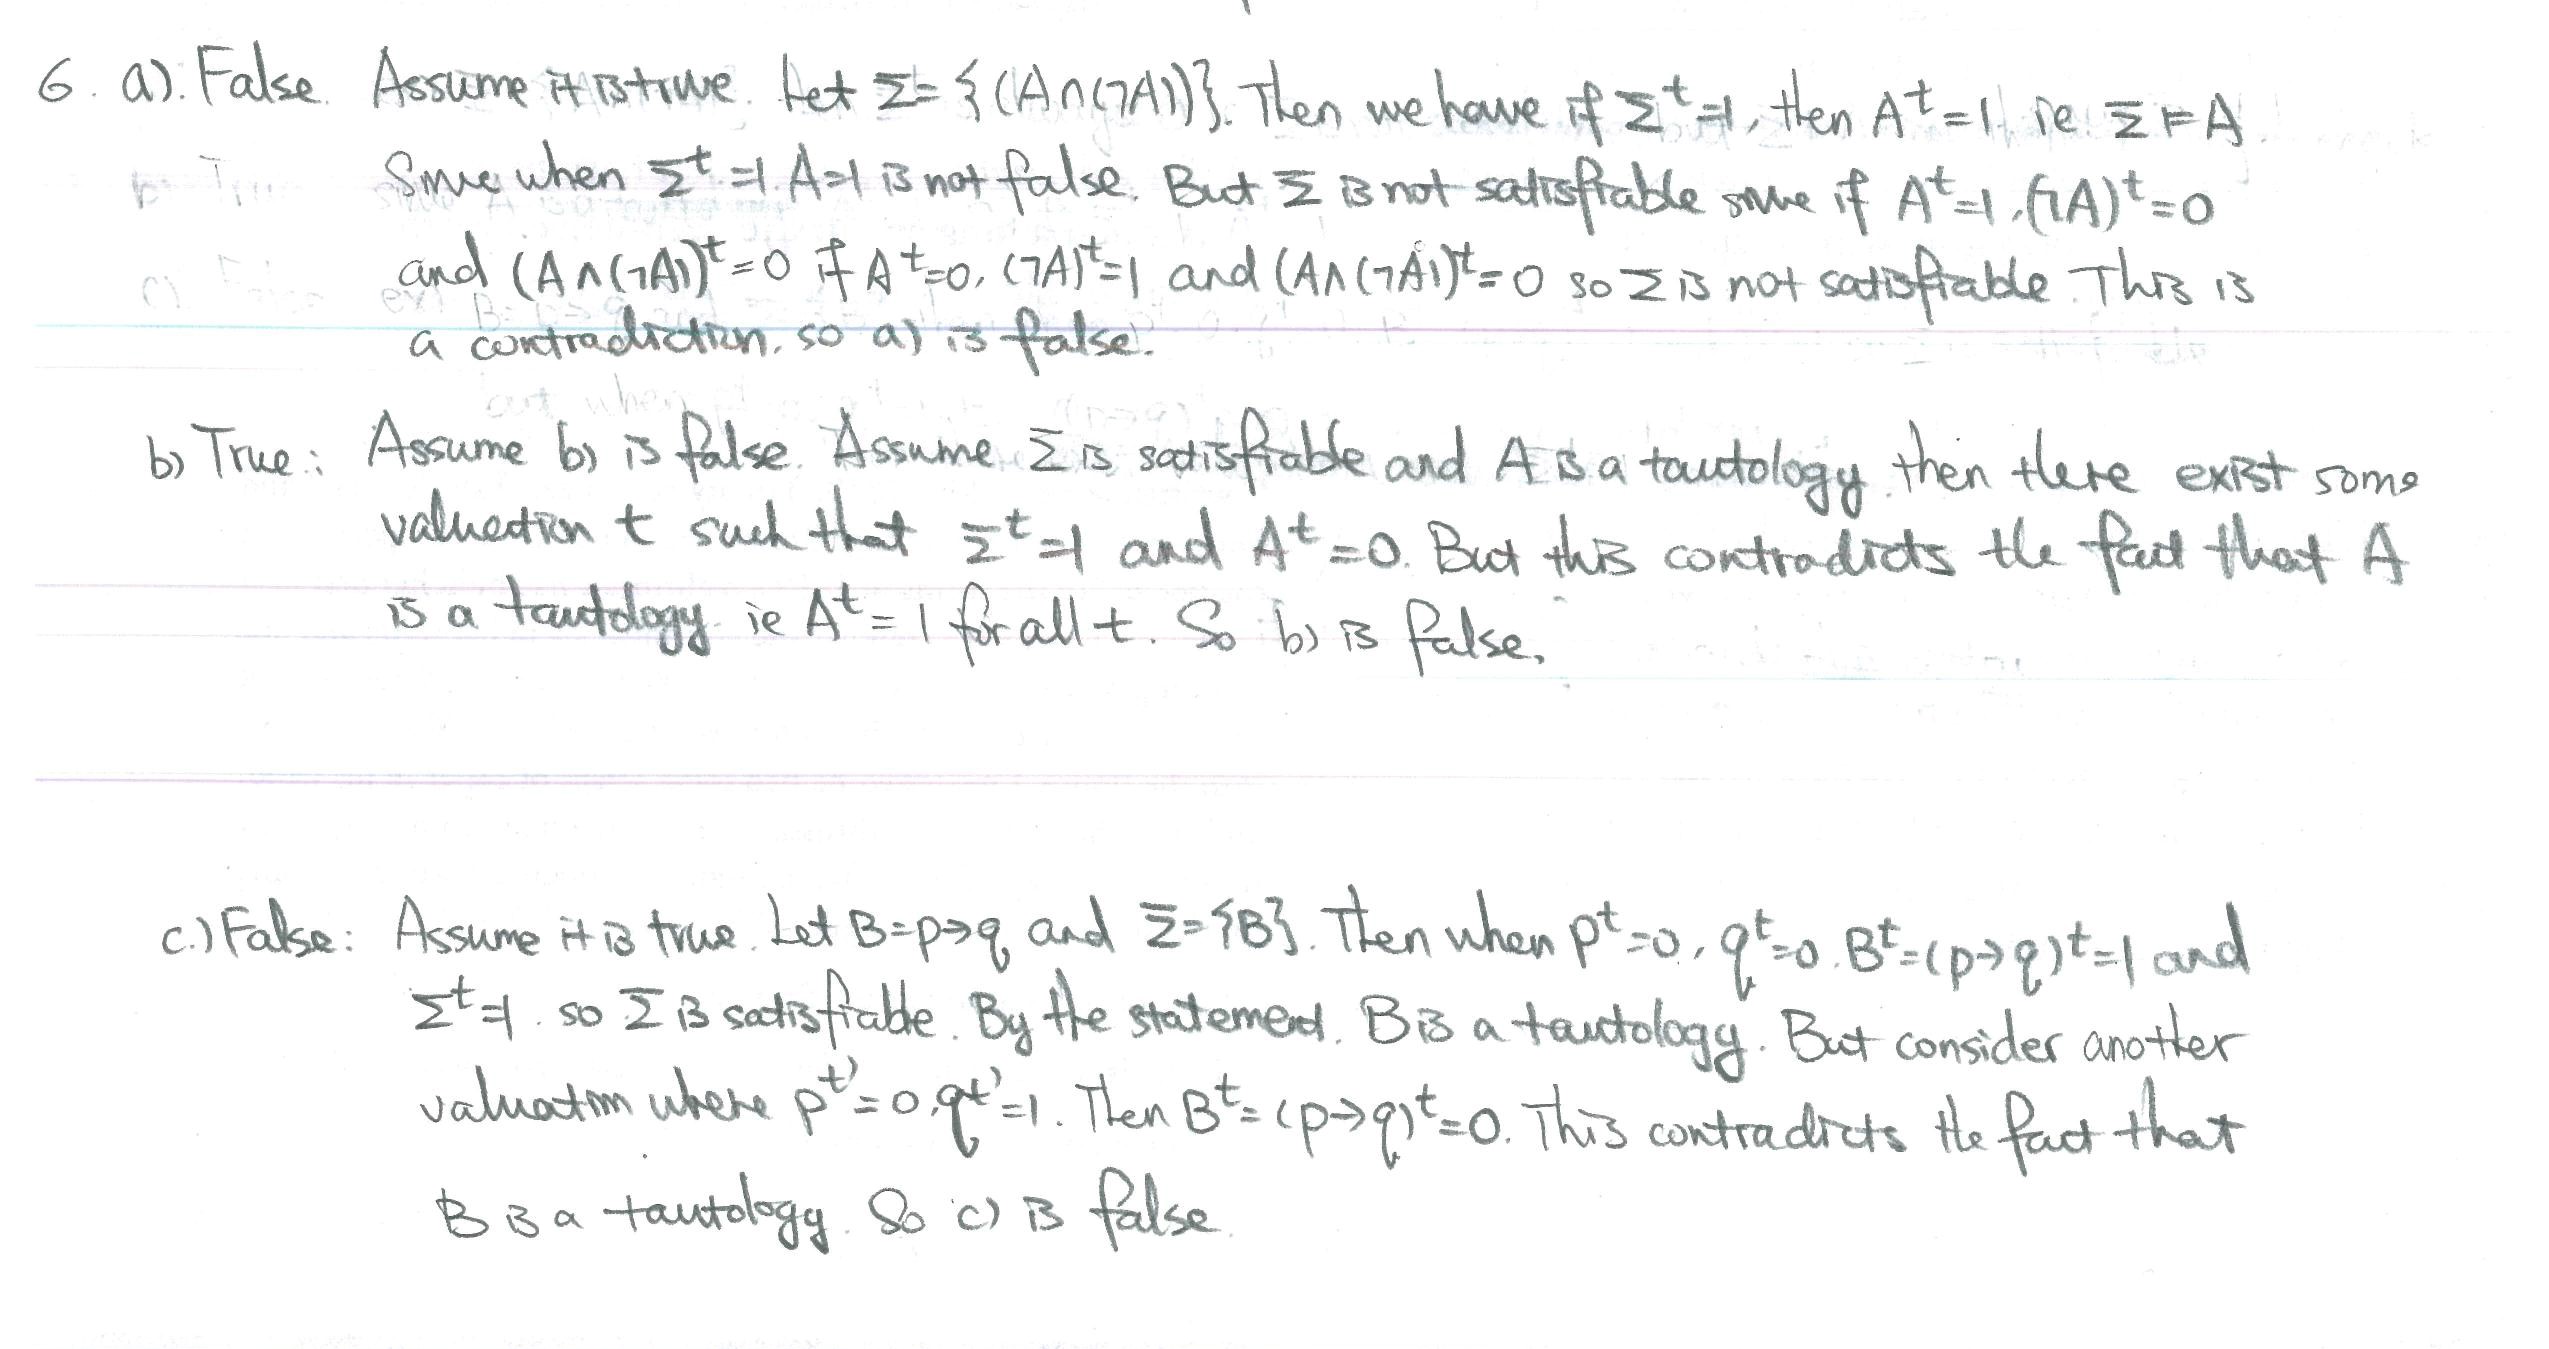 6. a). False. Assume it is true. Let Σ= {(A∩(¬A))}. Then we have if Σᵗ=1, then Aᵗ=1 ie. Σ⊨A
Since when Σᵗ=1. A=1 is not false. But Σ is not satisfiable since if Aᵗ=1, (¬A)ᵗ=0
and (A∧(¬A))ᵗ=0 if Aᵗ=0, (¬A)ᵗ=1 and (A∧(¬A))ᵗ=0 so Σ is not satisfiable. This is
a contradiction, so a) is false.
b) True: Assume b) is false. Assume Σ is satisfiable and A is a tautology then there exist some
valuation t such that Σᵗ=1 and Aᵗ=0. But this contradicts the fact that A
is a tautology ie Aᵗ=1 for all t. So b) is false.
c.) False: Assume it is true. Let B=p→q and Σ={B}. Then when pᵗ=0, qᵗ=0. Bᵗ=(p→q)ᵗ=1 and
Σᵗ=1. so Σ is satisfiable. By the statement. B is a tautology. But consider another
valuation where pᵗ'=0, qᵗ'=1. Then Bᵗ=(p→q)ᵗ=0. This contradicts the fact that
B is a tautology. So c) is false.